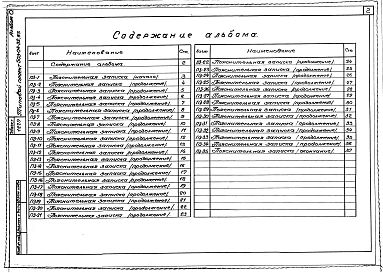 2
Альбом 0
Содержание альбома.
Лист Наименование Стр.
Содержание альбома 2
ПЗ-1 Пояснительная записка /начало/ 3
ПЗ-2 Пояснительная записка /продолжение/ 4
ПЗ-3 Пояснительная записка /продолжение/ 5
ПЗ-4 Пояснительная записка /продолжение/ 6
ПЗ-5 Пояснительная записка /продолжение/ 7
ПЗ-6 Пояснительная записка /продолжение/ 8
ПЗ-7 Пояснительная записка /продолжение/ 9
ПЗ-8 Пояснительная записка /продолжение/ 10
ПЗ-9 Пояснительная записка /продолжение/ 11
ПЗ-10 Пояснительная записка /продолжение/ 12
ПЗ-11 Пояснительная записка /продолжение/ 13
ПЗ-12 Пояснительная записка /продолжение/ 14
ПЗ-13 Пояснительная записка /продолжение/ 15
ПЗ-14 Пояснительная записка /продолжение/ 16
ПЗ-15 Пояснительная записка /продолжение/ 17
ПЗ-16 Пояснительная записка /продолжение/ 18
ПЗ-17 Пояснительная записка /продолжение/ 19
ПЗ-18 Пояснительная записка /продолжение/ 20
ПЗ-19 Пояснительная записка /продолжение/ 21
ПЗ-20 Пояснительная записка /продолжение/ 22
ПЗ-21 Пояснительная записка /продолжение/ 23
Лист Наименование Стр.
ПЗ-22 Пояснительная записка /продолжение/ 24
ПЗ-23 Пояснительная записка /продолжение/ 25
ПЗ-24 Пояснительная записка /продолжение/ 26
ПЗ-25 Пояснительная записка /продолжение/ 27
ПЗ-26 Пояснительная записка /продолжение/ 28
ПЗ-27 Пояснительная записка /продолжение/ 29
ПЗ-28 Пояснительная записка /продолжение/ 30
ПЗ-29 Пояснительная записка /продолжение/ 31
ПЗ-30 Пояснительная записка /продолжение/ 32
ПЗ-31 Пояснительная записка /продолжение/ 33
ПЗ-32 Пояснительная записка /продолжение/ 34
ПЗ-33 Пояснительная записка /продолжение/ 35
ПЗ-34 Пояснительная записка /продолжение/ 36
ПЗ-35 Пояснительная записка /окончание/ 37